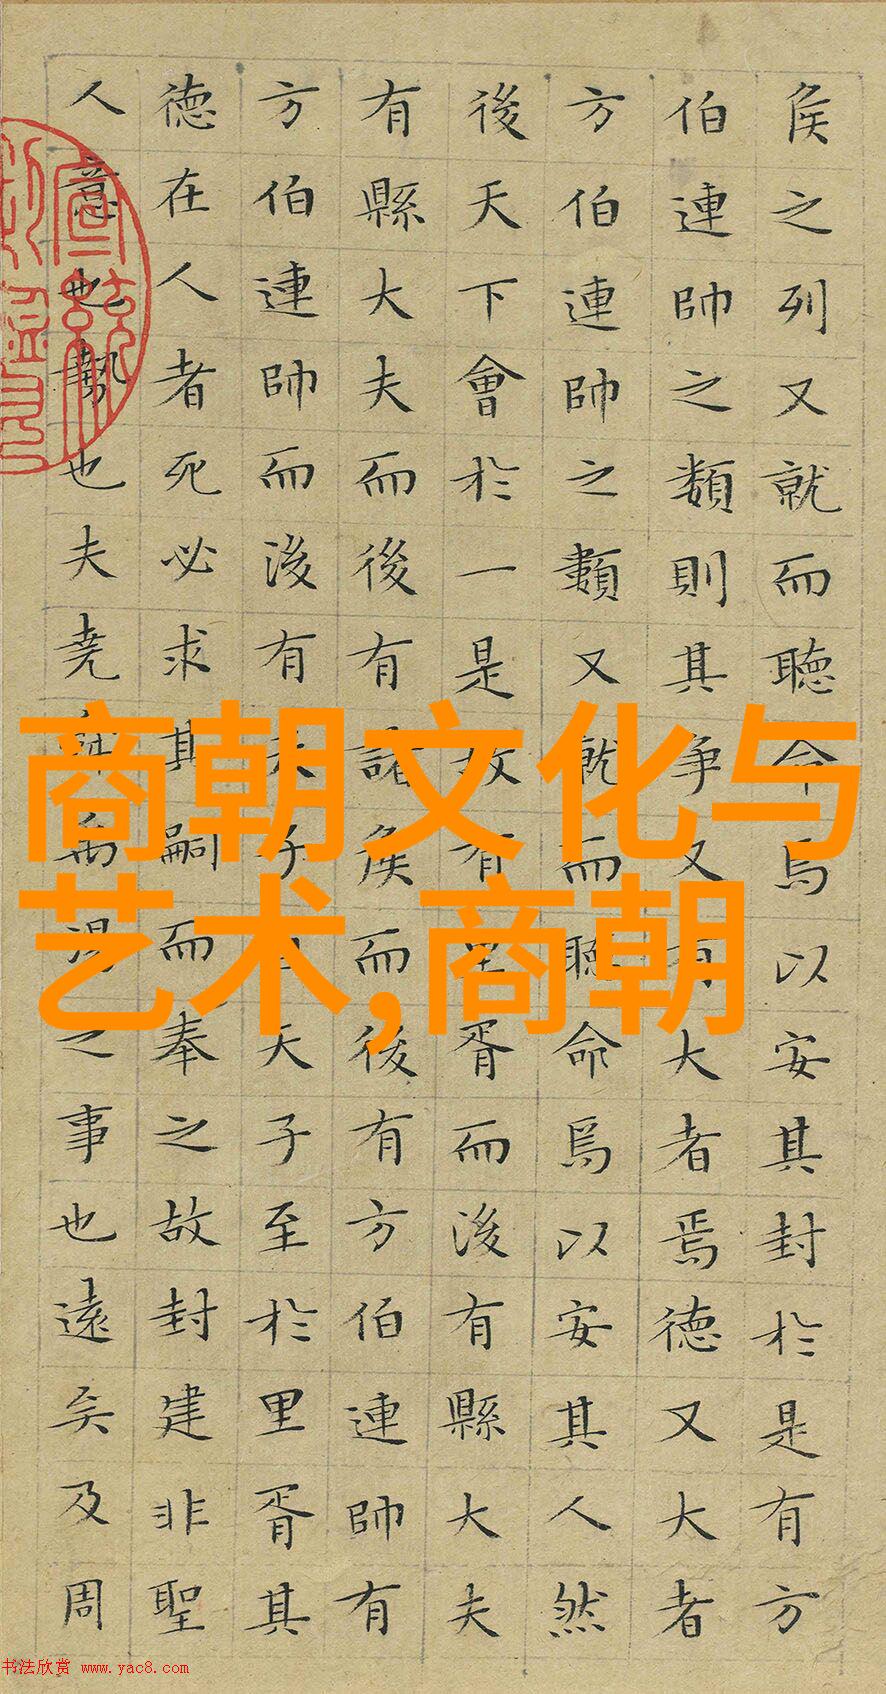 侯之列又就而聽命焉以安其封於是有方
伯連帥之類則其爭又有大者焉德又大者
方伯連帥之類又就而聽命焉以安其人然
後天下會於一是故有里胥而後有縣大夫
有縣大夫而後有諸侯而後有方伯連帥有
方伯連帥而後有天子自天子至於里胥其
德在人者死必求其嗣而奉之故封建非聖
人意也勢也夫堯舜禹湯之事也遠矣及周
商朝文化与
艺术,商朝
书法欣赏 www.yac8.com